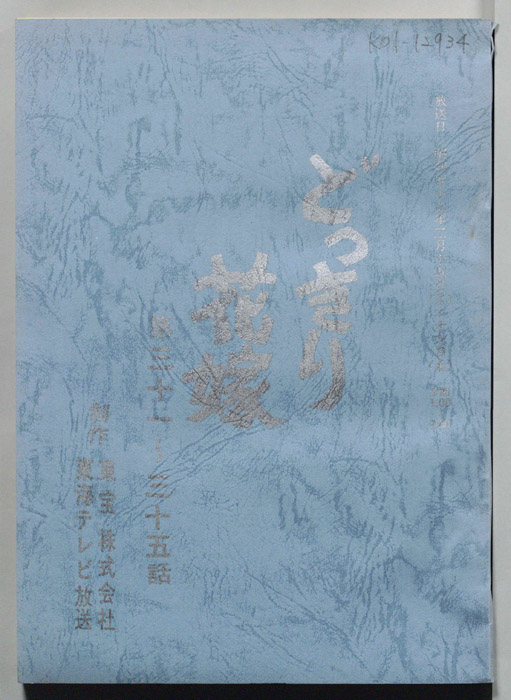 K01-12934
放送日
どっきり
花嫁
第三十一〜三十五話
制作 東宝株式会社
東海テレビ放送